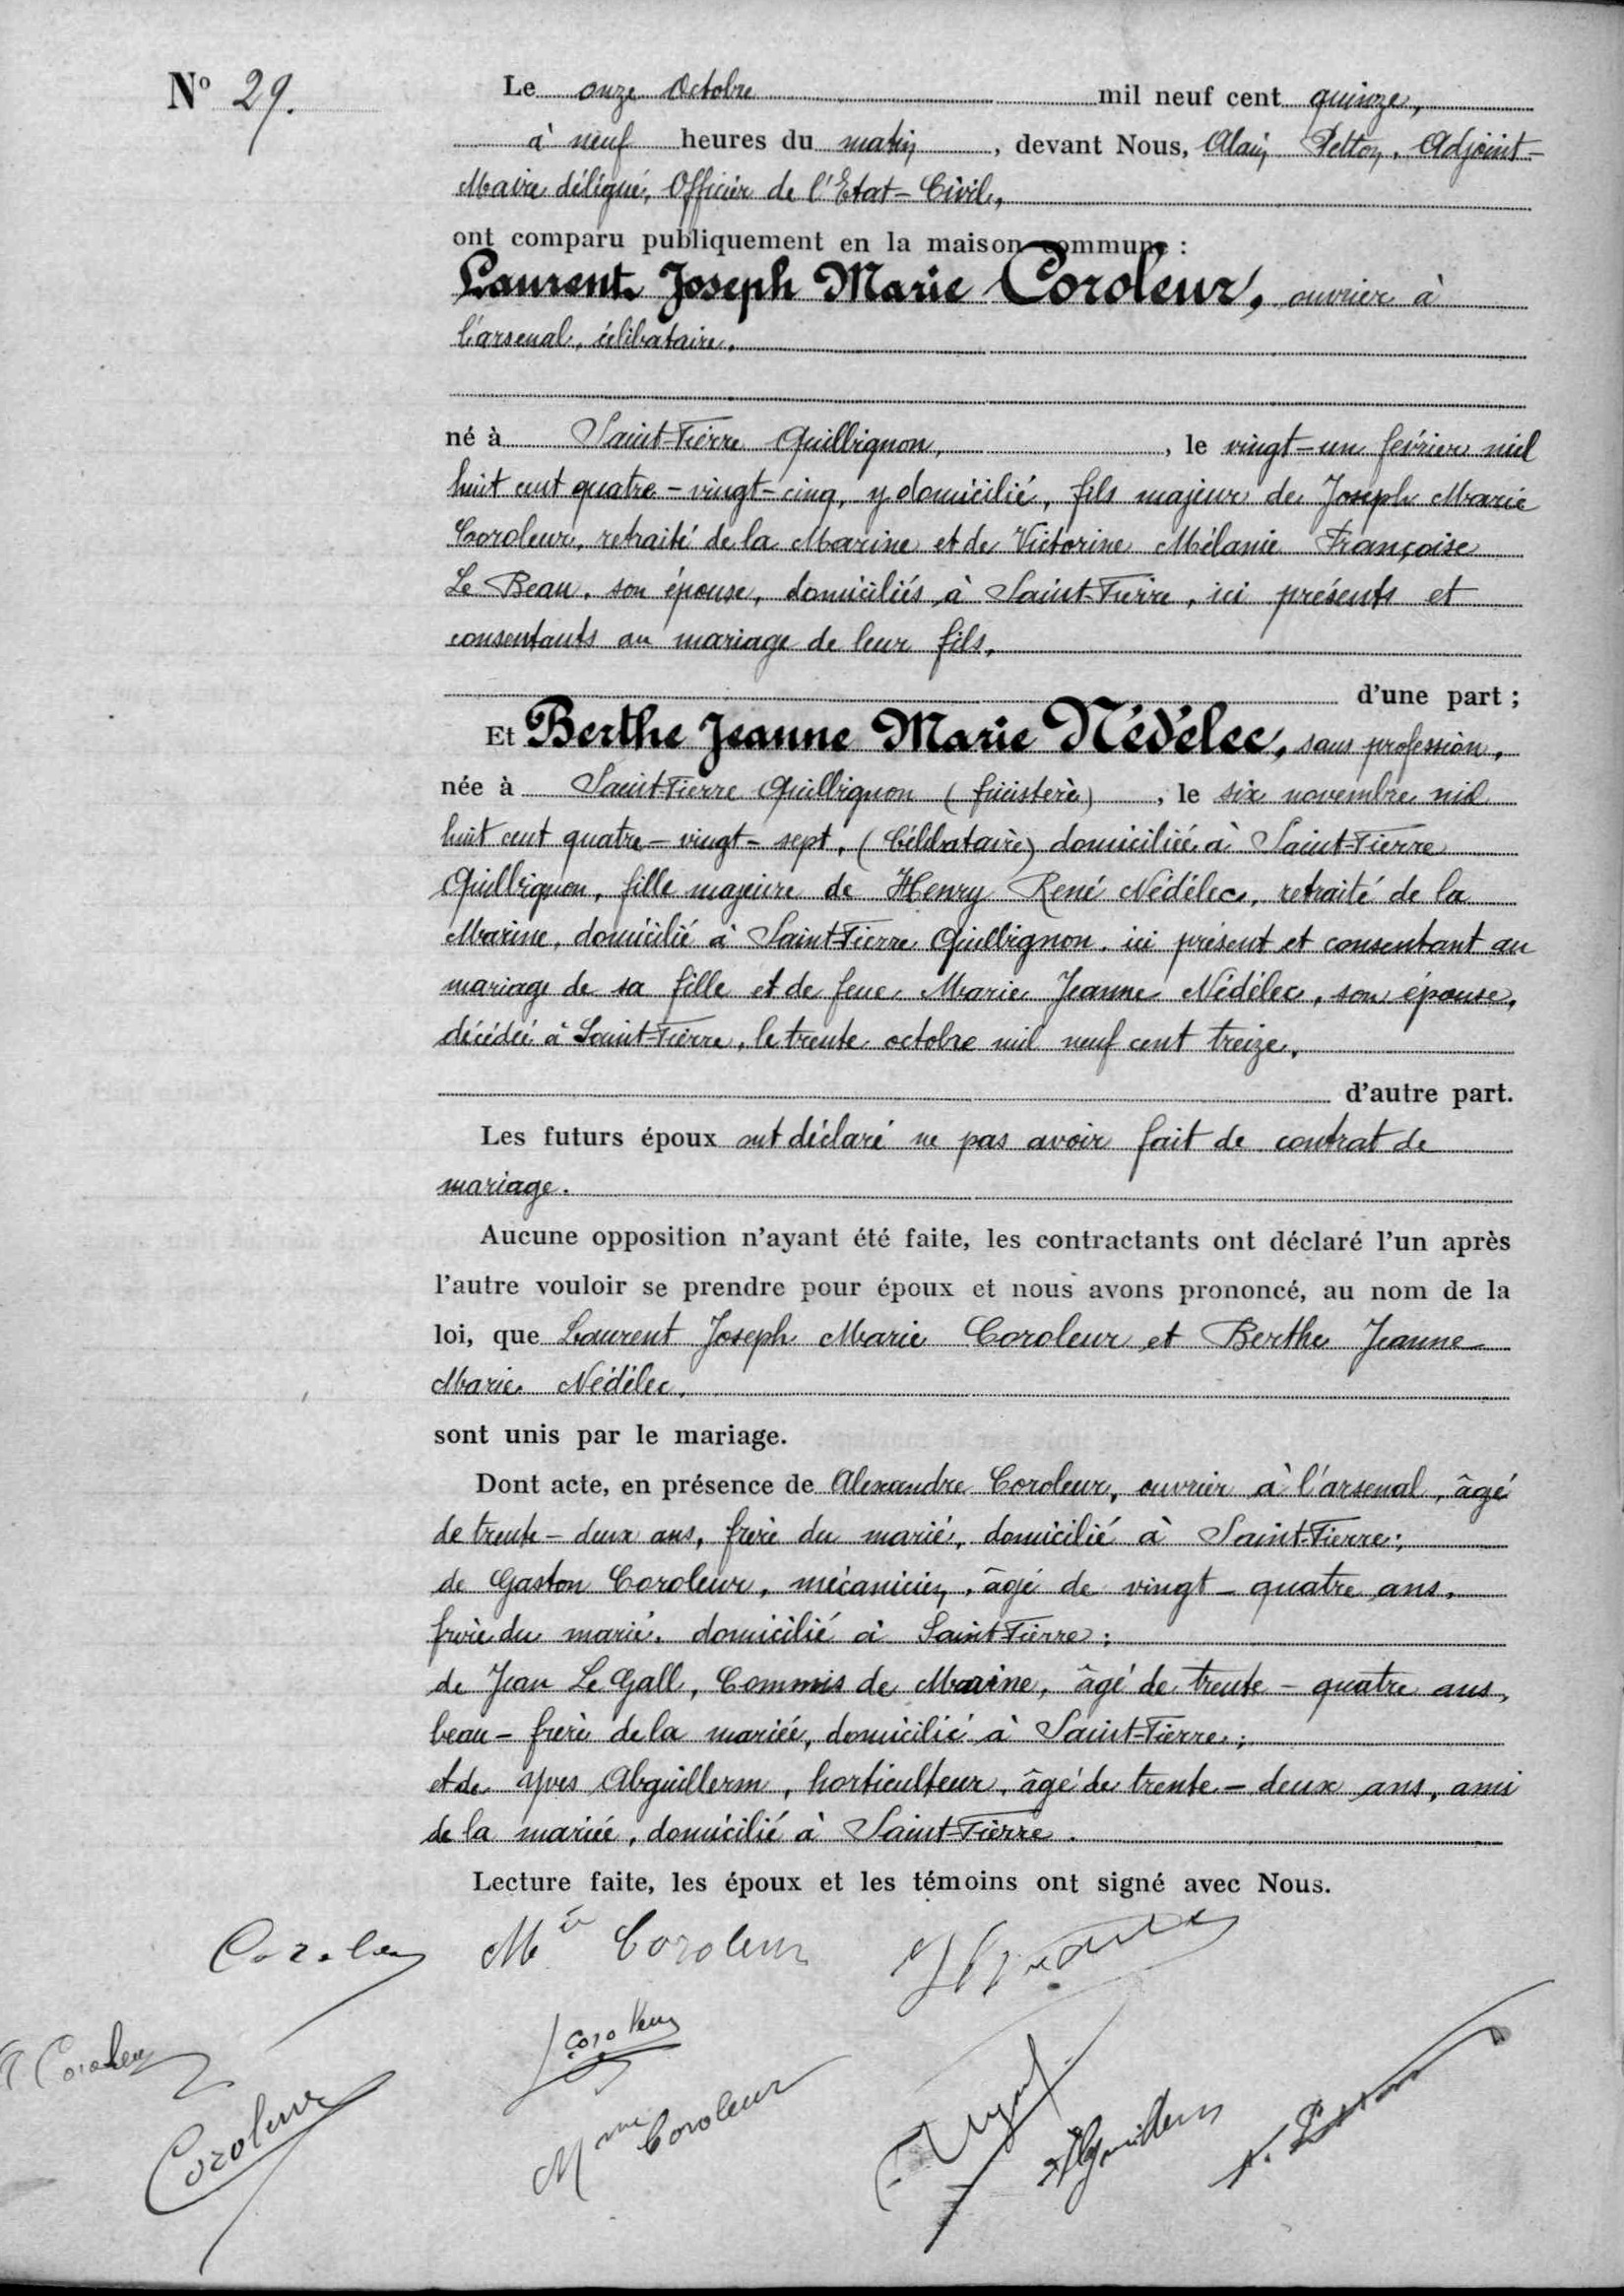 N° 29.
Le onze Octobre mil neuf cent quinze,
à neuf heures du matin, devant Nous, Alain Petton, Adjoint-
Maire délégué, Officier de l'Etat-Civil,
ont comparu publiquement en la maison commune :
Laurent Joseph Marie Coroleur, ouvrier à
l'arsenal, célibataire,
né à Saint-Pierre Quilbignon, le vingt-un février mil
huit cent quatre-vingt-cinq, y domicilié, fils majeur de Joseph Marie
Coroleur, retraité de la Marine et de Victorine Mélanie Françoise
Le Beau, son épouse, domiciliés à Saint-Pierre, ici présents et
consentants au mariage de leur fils,
d'une part ;
Et Berthe Jeanne Marie Nédélec, sans profession,
née à Saint-Pierre Quilbignon (finistère), le six novembre mil
huit cent quatre-vingt-sept, (Célibataire) domiciliée à Saint-Pierre
Quilbignon, fille majeure de Henry René Nédélec, retraité de la
Marine, domicilié à Saint-Pierre Quilbignon, ici présent et consentant au
mariage de sa fille et de feue Marie Jeanne Nédélec, son épouse,
décédée à Saint-Pierre, le trente octobre mil neuf cent treize,
d'autre part.
Les futurs époux ont déclaré ne pas avoir fait de contrat de
mariage.
Aucune opposition n'ayant été faite, les contractants ont déclaré l'un après
l'autre vouloir se prendre pour époux et nous avons prononcé, au nom de la
loi, que Laurent Joseph Marie Coroleur et Berthe Jeanne
Marie Nédélec,
sont unis par le mariage.
Dont acte, en présence de Alexandre Coroleur, ouvrier à l'arsenal, âgé
de trente-deux ans, frère du marié, domicilié à Saint-Pierre;
de Gaston Coroleur, mécanicien, âgé de vingt-quatre ans,
frère du marié, domicilié à Saint-Pierre;
de Jean Le Gall, Commis de Marine, âgé de trente-quatre ans,
beau-frère de la mariée, domicilié à Saint-Pierre;
et de Yves Abguillerm, horticulteur, âgé de trente-deux ans, ami
de la mariée, domicilié à Saint-Pierre.
Lecture faite, les époux et les témoins ont signé avec Nous.
Coroleur Coroleur
Coroleur
Coroleur
Coroleur
Mme Coroleur
Abguillerm
A. Petton